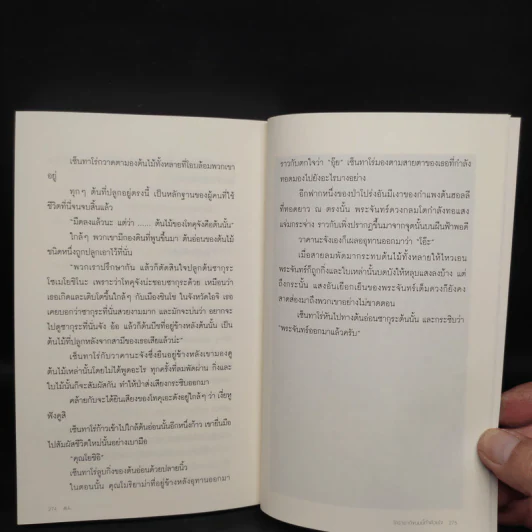 เซ็นทาโร่กวาดตามองต้นไม้ทั้งหลายที่โอบล้อมพวกเขา
อยู่
ทุกๆ ต้นที่ปลูกอยู่ตรงนี้ เป็นหลักฐานของผู้คนที่ใช้
ชีวิตที่นี่จนจบสิ้นแล้ว
“มืดลงแล้วนะ แต่ว่า ...... ต้นไม้ของโทคุจังคือต้นนั้น”
ใกล้ๆ พวกเขามีกองดินที่พูนขึ้นมา ต้นอ่อนของต้นไม้
ชนิดหนึ่งถูกปลูกเอาไว้ที่นั่น
“พวกเราปรึกษากัน แล้วก็ตัดสินใจปลูกต้นซากุระ
โซเมโยชิโนะ เพราะว่าโทคุจังน่ะชอบซากุระด้วย เหมือนว่า
เธอเกิดและเติบโตขึ้นใกล้ๆ กับเมืองชินโช ในจังหวัดไอจิ เธอ
เคยบอกว่าซากุระที่นั่นสวยงามมาก และมักจะบ่นว่า อยากจะ
ไปดูซากุระที่นั่นจัง อ้อ แล้วก็ต้นบ๊วยที่อยู่ข้างหลังต้นนั้น เป็น
ต้นไม้ที่ปลูกหลังจากสามีของเธอเสียแล้วน่ะ”
เซ็นทาโร่กับวาคานะจังซึ่งยืนอยู่ข้างหลังเขามองดู
ต้นไม้เหล่านั้นโดยไม่ได้พูดอะไร ทุกครั้งที่ลมพัดผ่าน กิ่งและ
ใบไม้นั้นก็จะสัมผัสกัน ทำให้ป่าส่งเสียงกระซิบออกมา
คล้ายกับจะได้ยินเสียงของโทคุเอะดังอยู่ใกล้ๆ ว่า เงี่ยหู
ฟังดูสิ
เซ็นทาโร่ก้าวเข้าไปใกล้ต้นอ่อนนั้นอีกหนึ่งก้าว เขายื่นมือ
ไปสัมผัสชีวิตใหม่นั้นอย่างเบามือ
“คุณโยชิอิ”
เซ็นทาโร่ลูบกิ่งของต้นอ่อนด้วยปลายนิ้ว
ในตอนนั้น คุณโมริยาม่าที่อยู่ข้างหลังอุทานออกมา
ราวกับตกใจว่า “อุ๊ย” เซ็นทาโร่มองตามสายตาของเธอที่กำลัง
ทอดมองไปยังอะไรบางอย่าง
อีกฟากหนึ่งของป่าโปร่งอันมีเงาของกำแพงต้นฮอลลี
ที่ทอดยาว ณ ตรงนั้น พระจันทร์ดวงกลมโตกำลังทอแสง
แจ่มกระจ่าง ราวกับเพิ่งปรากฏขึ้นมาจากจุดนั้นบนผืนฟ้าพอดี
วาคานะจังเองก็เผลออุทานออกมาว่า “โอ๊ะ”
เมื่อสายลมพัดมากระทบต้นไม้ทั้งหลายให้ไหวเอน
พระจันทร์ก็ถูกกิ่งและใบเหล่านั้นบดบังให้หลุบแสงลงบ้าง แต่
ถึงกระนั้น แสงอันเยือกเย็นของพระจันทร์เต็มดวงก็ยังคง
สาดส่องมาถึงพวกเขาอย่างไม่ขาดตอน
เซ็นทาโร่หันไปทางต้นอ่อนซากุระต้นนั้น และกระซิบว่า
“พระจันทร์ออกมาแล้วครับ”